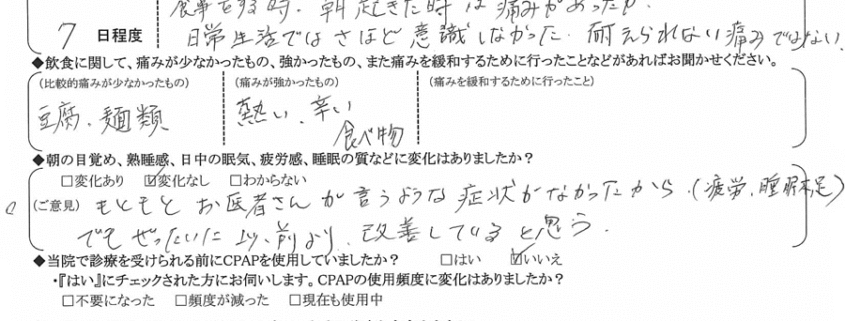 食事をする時、朝起きた時は痛みがあったが、
7 日程度 日常生活ではさほど意識しなかった。耐えられない痛みではない。
◆飲食に関して、痛みが少なかったもの、強かったもの、また痛みを緩和するために行ったことなどがあればお聞かせください。
(比較的痛みが少なかったもの) (痛みが強かったもの) (痛みを緩和するために行ったこと)
豆腐、麺類 熱い、辛い
食べ物
◆朝の目覚め、熟睡感、日中の眠気、疲労感、睡眠の質などに変化はありましたか?
□変化あり ☑変化なし □わからない
(ご意見) もともと お医者さんが言うような症状がなかったから。(疲労、睡眠不足)
でもぜったいに 前より、改善していると思う。
◆当院で診療を受けられる前にCPAPを使用していましたか? □はい ☑いいえ
・『はい』にチェックされた方にお伺いします。CPAPの使用頻度に変化はありましたか?
□不要になった □頻度が減った □現在も使用中